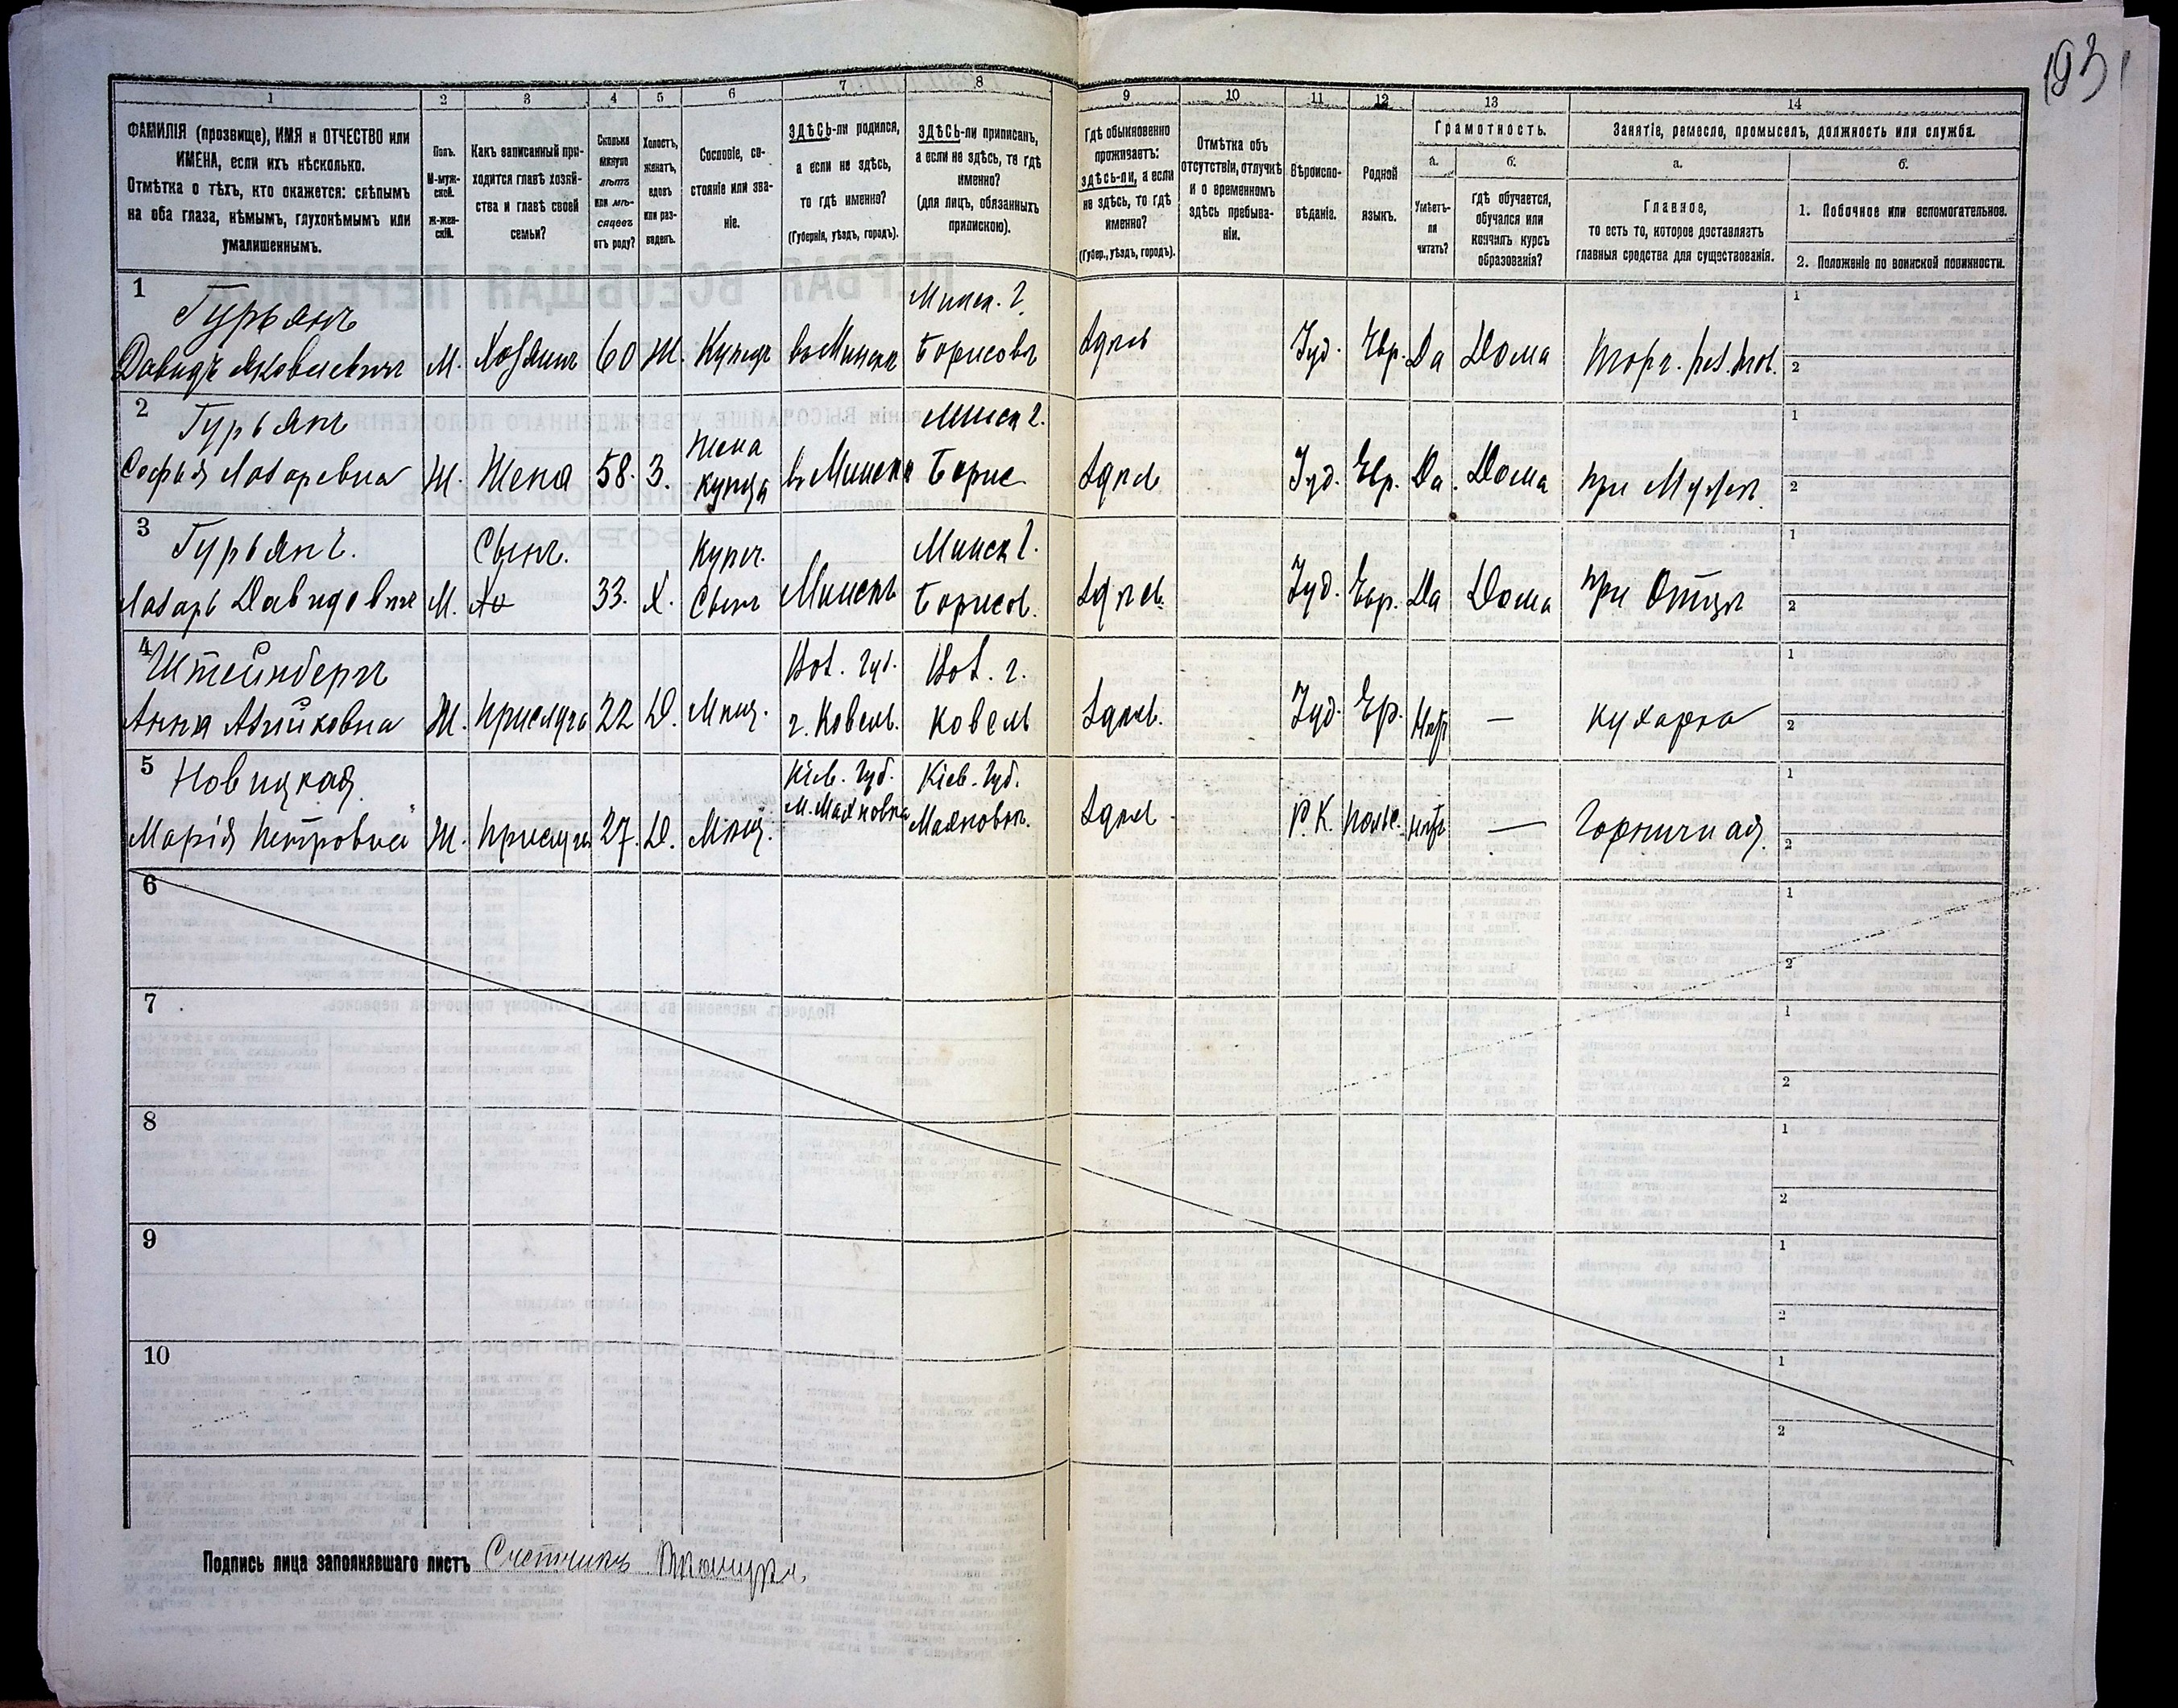 193
1
2
3
4
5
6
7
8
9
10
11
12
13
14
ФАМИЛІЯ (прозвище), ИМЯ и ОТЧЕСТВО или
ИМЕНА, если ихъ нѣсколько.
Отмѣтка о тѣхъ, кто окажется: слѣпымъ
на оба глаза, нѣмымъ, глухонѣмымъ или
умалишеннымъ.
Полъ.
М-муж-
ской.
Ж-жен-
скій.
Какъ записанный при-
ходится главѣ хозяй-
ства и главѣ своей
семьи?
Сколько
минуло
лѣтъ
или мѣ-
сяцевъ
отъ роду?
Холостъ,
женатъ,
вдовъ
или раз-
веденъ.
Сословіе, со-
стояніе или зва-
ніе.
ЗДѢСЬ-ли родился,
а если не здѣсь,
то гдѣ именно?
(Губернія, уѣздъ, городъ).
ЗДѢСЬ-ли приписанъ,
а если не здѣсь, то гдѣ
именно?
(для лицъ, обязанныхъ
припискою).
Гдѣ обыкновенно
проживаетъ:
здѣсь-ли, а если
не здѣсь, то гдѣ
именно?
(Губер., уѣздъ, городъ).
Отмѣтка объ
отсутствіи, отлучкѣ
и о временномъ
здѣсь пребыва-
ніи.
Вѣроиспо-
вѣданіе.
Родной
языкъ.
Грамотность.
а.
б.
Умѣетъ-
ли
читать?
гдѣ обучается,
обучался или
кончилъ курсъ
образованія?
Занятіе, ремесло, промыселъ, должность или служба.
а.
б.
Главное,
то есть то, которое доставляетъ
главныя средства для существованія.
1. Побочное или вспомогательное.
2. Положеніе по воинской повинности.
1
Гурьянъ
Давидъ Яковлевичъ
М.
Хозяинъ
60
Ж.
Купецъ
въ Минскѣ
Минск. г.
Борисовъ
Здѣсь
Іуд.
Евр.
Да
Дома
1
2
2
Гурьянъ
Софья Лазаревна
Ж.
Жена
58.
З.
Жена
купца
въ Минскѣ
Минск г.
Борис
Здѣсь
Іуд.
Евр.
Да.
Дома
при Мужѣ.
1
2
3
Гурьянъ.
Лазарь Давидовичъ
М.
Сынъ.
33.
Х.
Купеч.
Сынъ
Минскъ
Минск г.
Борисов.
Здѣсь.
Іуд.
Евр.
Да
Дома
при Отцѣ
1
2
4
Штейнбергъ
Ж.
Прислуга
22
Д.
Мѣщ.
Вол. губ.
г. Ковель.
Вол. г.
Ковель
Здѣсь.
Іуд.
Ев.
Нѣтъ
—
кухарка
1
2
5
Новицкая
Марія Петровна
Ж.
Прислуга
27.
Д.
Мѣщ.
Кіев. губ.
М. Махновка
Кіев. губ.
Махновк.
Здѣсь
Р. К.
Польс.
нѣтъ
—
Горничная.
1
2
6
1
2
7
1
2
8
1
2
9
1
2
10
1
2
Подпись лица заполнявшаго листъ Счетчикъ